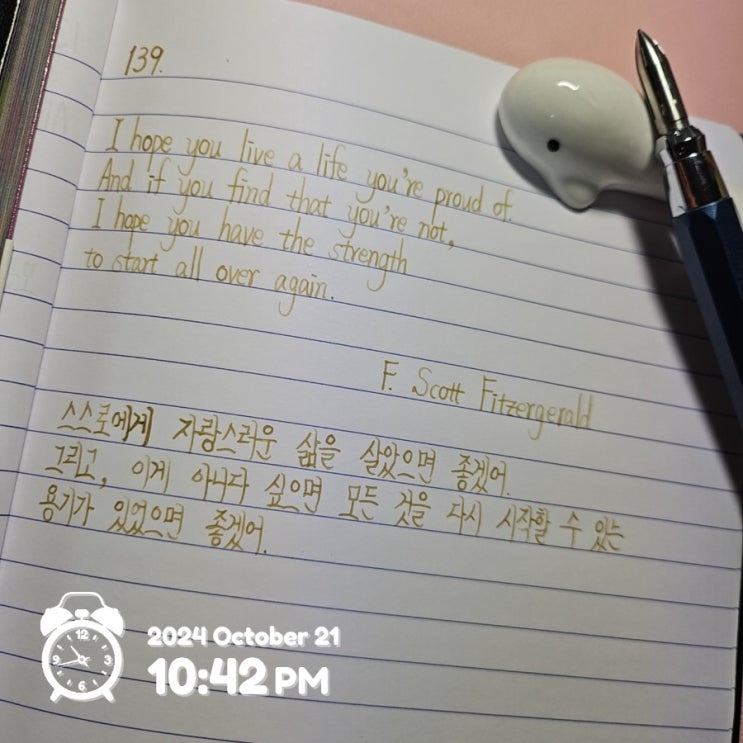 139.
I hope you live a life you're proud of.
And if you find that you're not,
I hope you have the strength
to start all over again.
F. Scott Fitzergerald
스스로에게 자랑스러운 삶을 살았으면 좋겠어.
그리고, 이게 아니다 싶으면 모든 것을 다시 시작할 수 있는
용기가 있었으면 좋겠어.
2024 October 21
10:42 PM